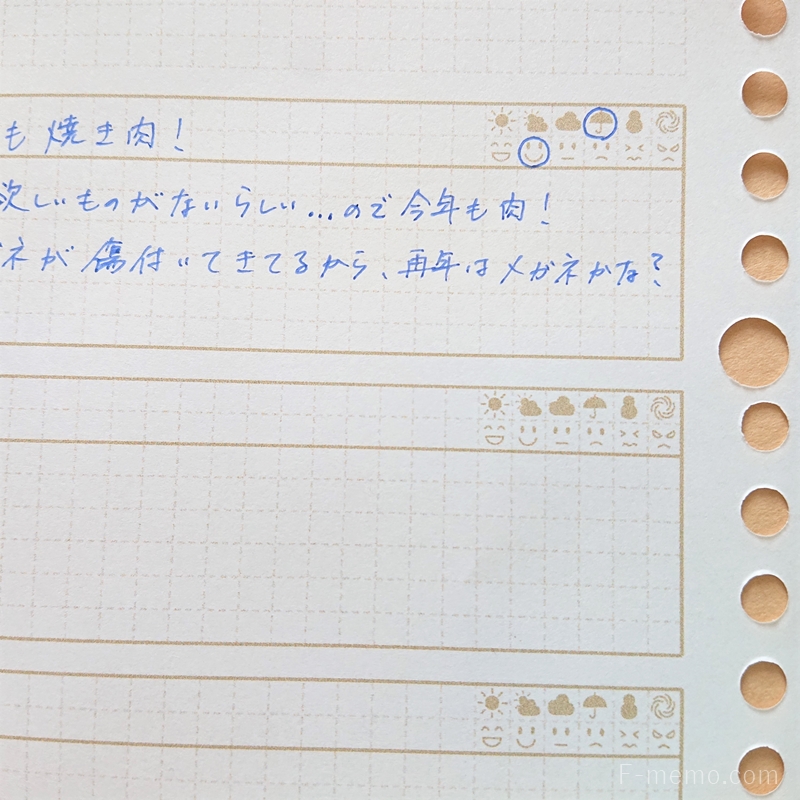 も焼き肉！
欲しいものがないらしい…ので今年も肉！
ネが傷付いてきてるから、再年はメガネかな？
F-memo.com